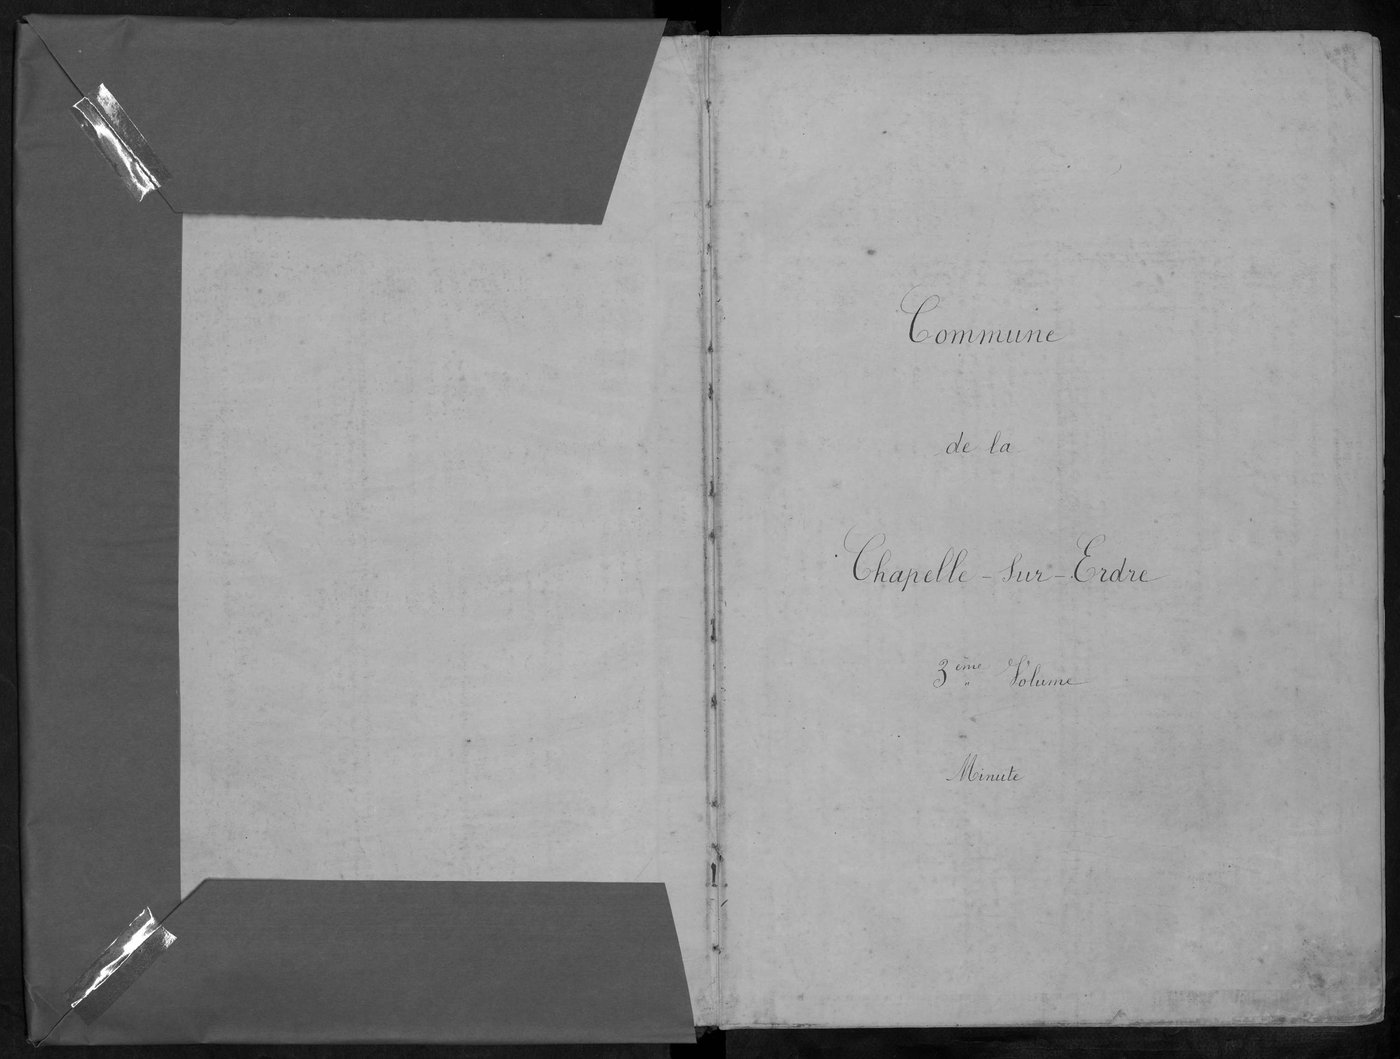 Commune
de la
Chapelle-sur-Erdre
3ème Volume
Minute